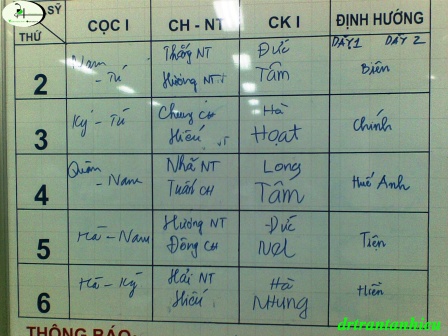 SỸ
THỨ
CỌC I
CH - NT
CK I
ĐỊNH HƯỚNG
DÃY1 DÃY 2
2
Nam
- Tú
Thắng NT
Hương NT
Đức
Tấm
Biên
3
Kỳ - Tú
Chung CH
Hiếu
Hà
Hoạt
Chính
4
Quân
- Nam
Nhã NT
Tuấn CH
Long
Tấm
Huế Anh
5
Hà - Nam
Hương NT
Đông CH
Đức
Tiện
6
Hà - Kỳ
Hải NT
Hiếu
Hà
Nhung
Hiền
THÔNG BÁO:
drtrantanhieu